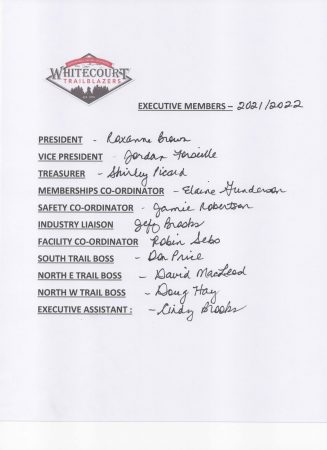 WHITECOURT
TRAILBLAZERS
EXECUTIVE MEMBERS – 2021/2022
PRESIDENT - Roxanne Brown
VICE PRESIDENT - Jordan
TREASURER - Shirley Picard
MEMBERSHIPS CO-ORDINATOR - Elaine Gunderson
SAFETY CO-ORDINATOR - Jamie Robertson
INDUSTRY LIAISON Jeff Brooks
FACILITY CO-ORDINATOR Robin Sebo
SOUTH TRAIL BOSS - Don Price
NORTH E TRAIL BOSS - David MacLeod
NORTH W TRAIL BOSS - Doug Hay
EXECUTIVE ASSISTANT : - Cindy Brooks